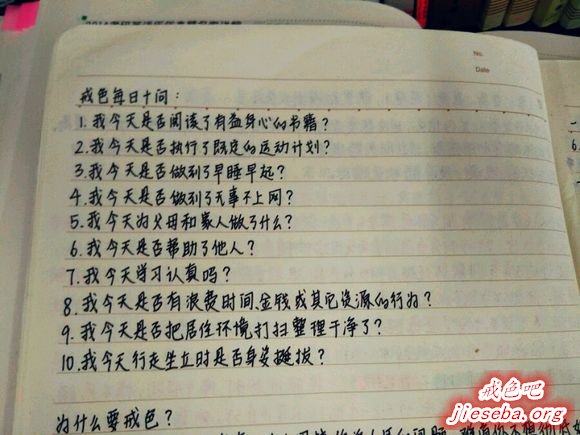 2014考研英语历年真题
No.
Date
戒色每日十问：
1.我今天是否阅读了有益身心的书籍？
2.我今天是否执行了既定的运动计划？
3.我今天是否做到了早睡早起？
4.我今天是否做到了无事不上网？
5.我今天为父母和家人做了什么？
6.我今天是否帮助了他人？
7.我今天学习认真吗？
8.我今天是否有浪费时间金钱或其它资源的行为？
9.我今天是否把居住环境打扫整理干净了？
10.我今天行走坐立时是否身姿挺拔？
为什么要戒色？
戒色吧
jieseba.org